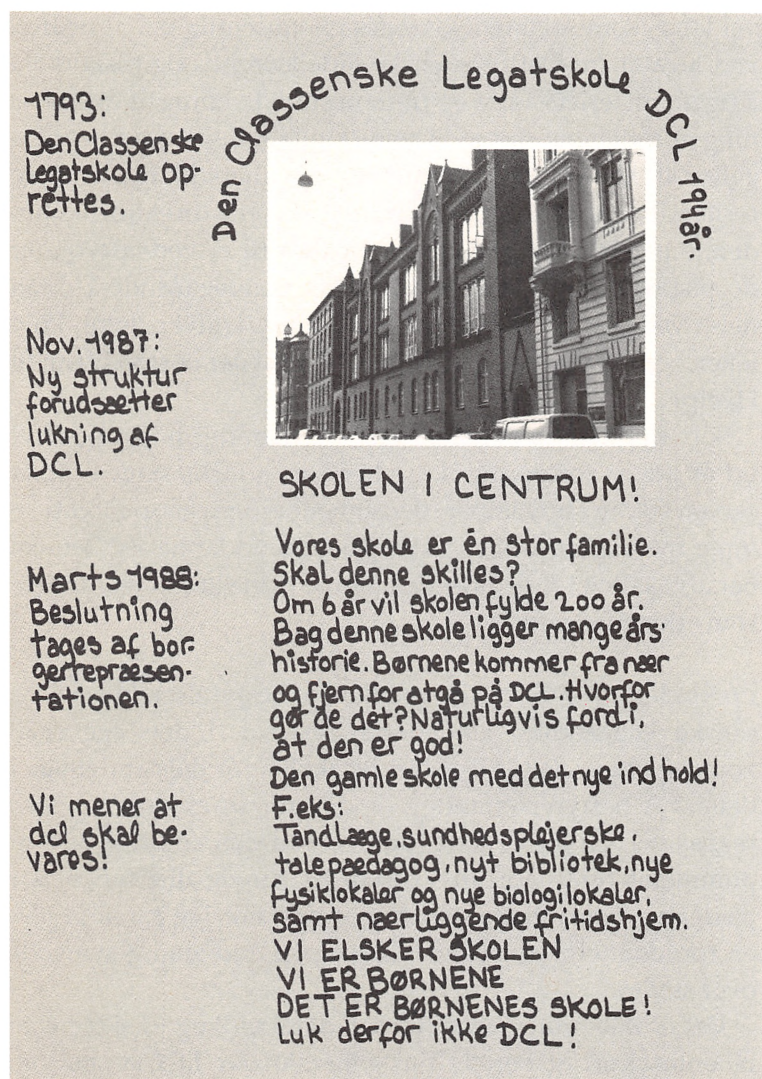 Den Classenske Legatskole DCL 194 år.
1793:
Den Classenske
legatskole op-
rettes.
Nov. 1987:
Ny struktur
forudsætter
lukning af
DCL.
Marts 1988:
Beslutning
tages af bor-
gerrepræsen-
tationen.
Vi mener at
dcl skal be-
vares!
SKOLEN I CENTRUM!
Vores skole er én stor familie.
Skal denne skilles?
Om 6 år vil skolen fylde 200 år.
Bag denne skole ligger mange års
historie. Børnene kommer fra nær
og fjern for at gå på DCL. Hvorfor
gør de det? Naturligvis fordi,
at den er god!
Den gamle skole med det nye ind hold!
F.eks:
Tandlæge, sundhedsplejerske,
talepædagog, nyt bibliotek, nye
fysiklokaler og nye biologilokaler,
samt nærliggende fritidshjem.
VI ELSKER SKOLEN
VI ER BØRNENE
DET ER BØRNENES SKOLE!
Luk derfor ikke DCL!